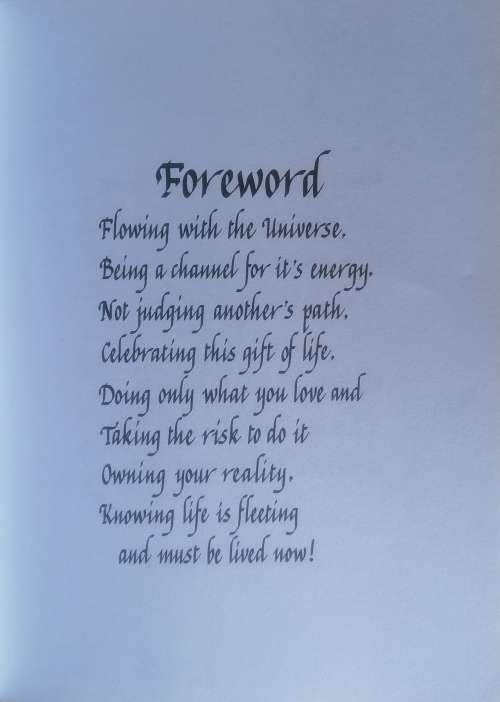 Foreword
Flowing with the Universe.
Being a channel for it's energy.
Not judging another's path.
Celebrating this gift of life.
Doing only what you love and
Taking the risk to do it
Owning your reality.
Knowing life is fleeting
and must be lived now!